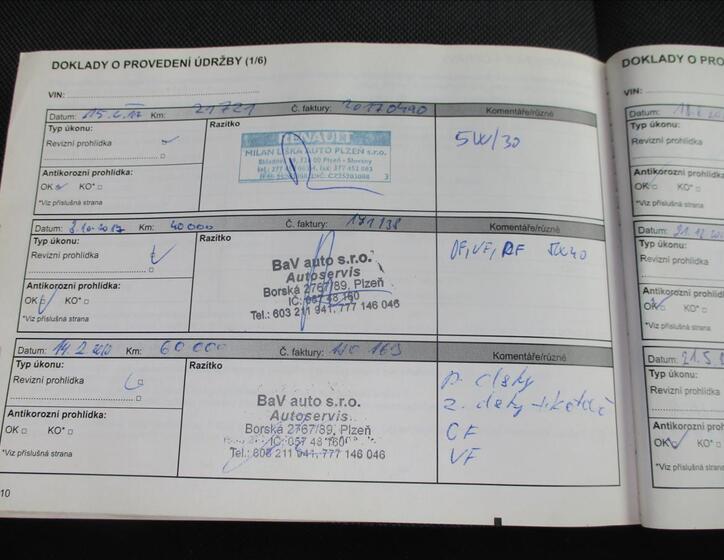 DOKLADY O PROVEDENÍ ÚDRŽBY (1/6)
VIN:
Datum: Km: 21721 Č. faktury: 20170490 Komentáře/různé
Typ úkonu:
Revizní prohlídka
Antikorozní prohlídka:
OK KO*
*Viz příslušná strana
Razítko
RENAULT
MILAN LIŠKA AUTO PLZEŇ s.r.o.
5W/30
Datum: 3.10.2017 Km: 40000 Č. faktury: 171138 Komentáře/různé
Typ úkonu:
Revizní prohlídka
Antikorozní prohlídka:
OK KO*
*Viz příslušná strana
Razítko
BaV auto s.r.o.
Autoservis
Borská 2767/89, Plzeň
IČ: 057 48 160
Tel.: 603 211 941, 777 146 046
Datum: Km: 60000 Č. faktury: Komentáře/různé
Typ úkonu:
Revizní prohlídka
Antikorozní prohlídka:
OK KO*
*Viz příslušná strana
Razítko
BaV auto s.r.o.
Autoservis
Borská 2767/89, Plzeň
IČ: 057 48 160
Tel.: 603 211 941, 777 146 046
CF
VF
10
DOKLADY O PRO
VIN:
Datum:
Typ úkonu:
Revizní prohlídka
Antikorozní prohlíd
OK KO*
*Viz příslušná strana
Datum:
Typ úkonu:
Revizní prohlídka
Antikorozní prohlíd
OK KO*
*Viz příslušná strana
Datum:
Typ úkonu:
Revizní prohlídka
Antikorozní prohlíd
OK KO*
*Viz příslušná strana